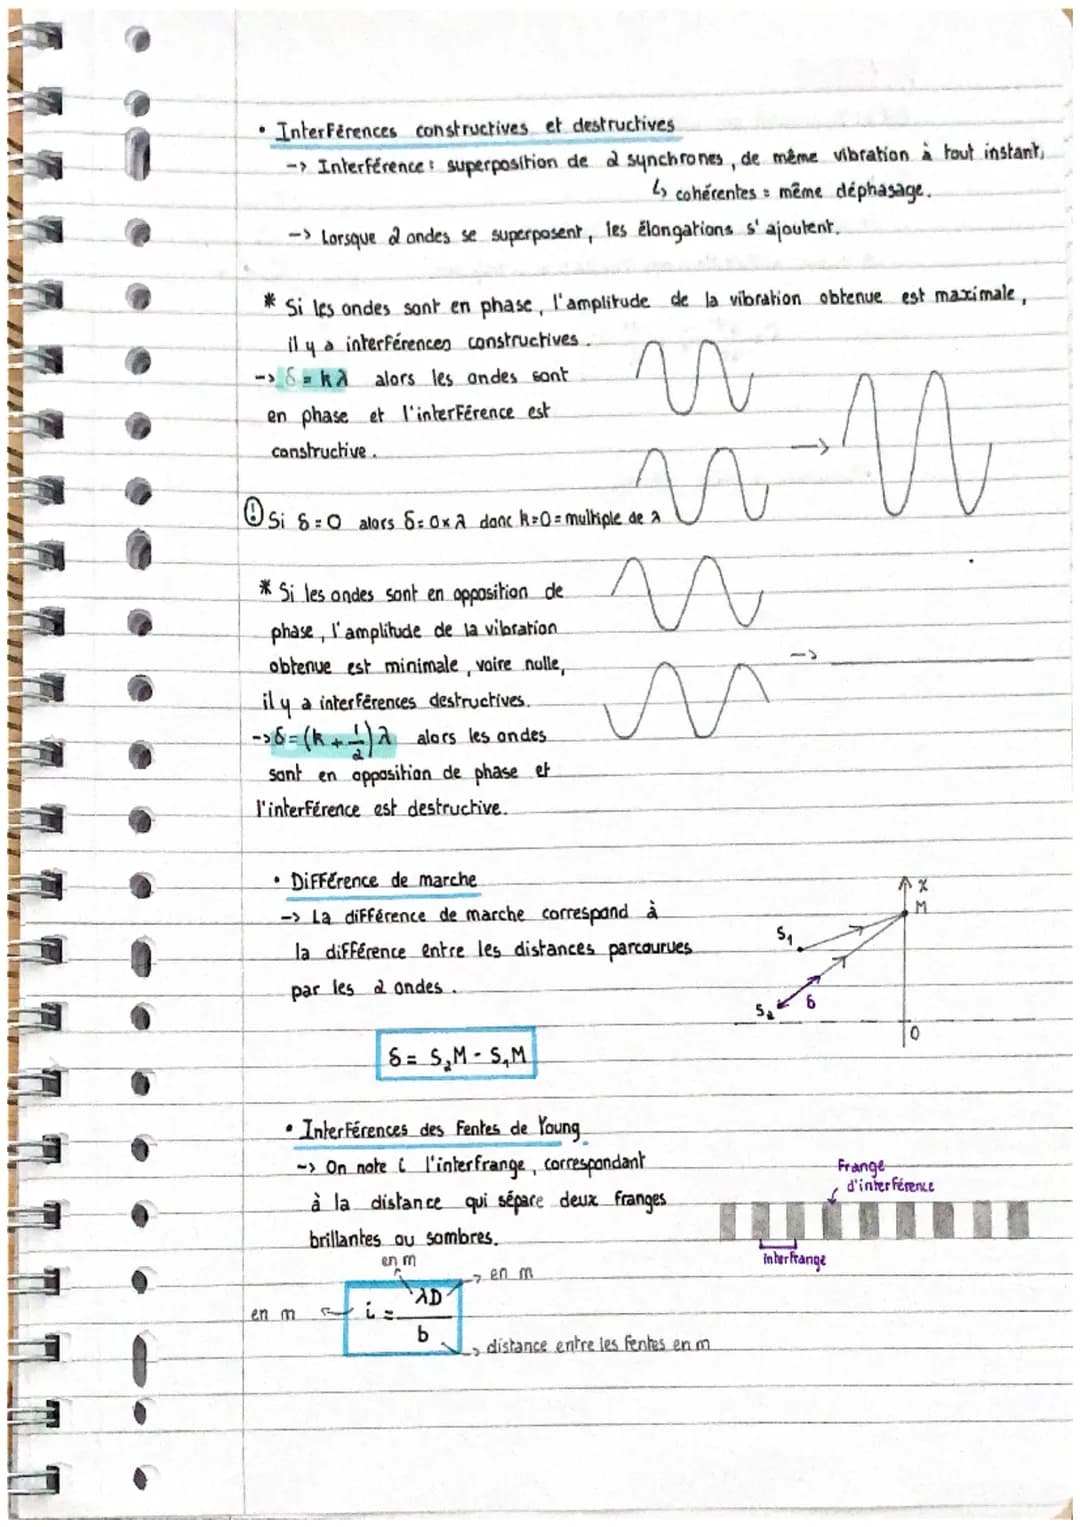 • Interférences constructives et destructives
-> Interférence : superposition de 2 synchrones, de même vibration à tout instant,
↳ cohérentes = même déphasage.
-> Lorsque 2 ondes se superposent, les élongations s'ajoutent.
* Si les ondes sont en phase, l'amplitude de la vibration obtenue est maximale,
il y a interférences constructives.
-> δ = kλ alors les ondes sont
en phase et l'interférence est
constructive.
->
! Si δ = 0 alors δ = 0 x λ donc k=0 = multiple de λ
* Si les ondes sont en opposition de
phase, l'amplitude de la vibration
obtenue est minimale, voire nulle,
il y a interférences destructives.
-> δ = (k + 1/2) λ alors les ondes
sont en opposition de phase et
l'interférence est destructive.
->
• Différence de marche
-> La différence de marche correspond à
la différence entre les distances parcourues
par les 2 ondes.
δ = S₂M - S₁M
x
M
S₁
S₂
δ
O
• Interférences des Fentes de Young
-> On note i l'interfrange, correspondant
à la distance qui sépare deux franges
brillantes ou sombres.
Frange
d'interférence
interfrange
en m
en m
en m
i = λD / b
distance entre les fentes en m